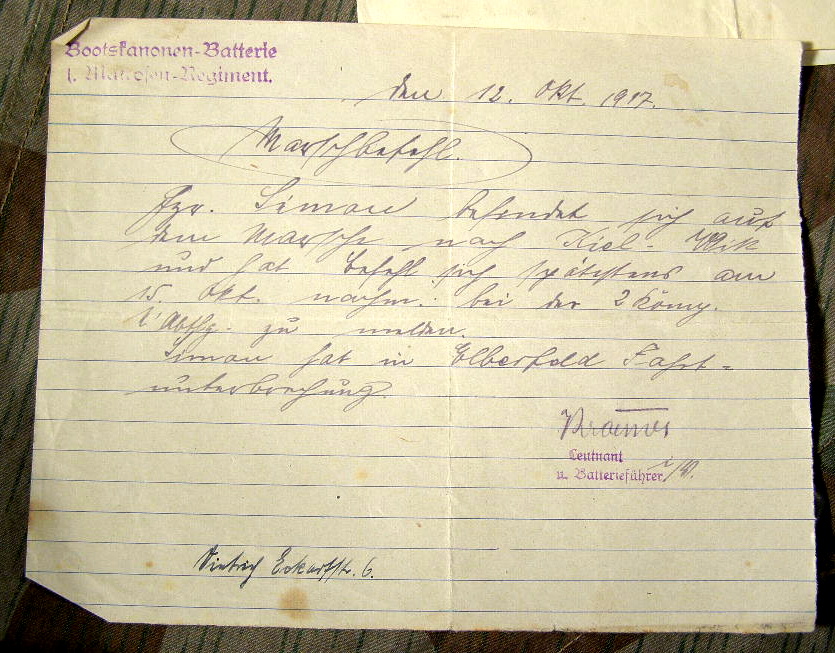 Bootskanonen-Batterie
1. Matrosen-Regiment.
den 12. Okt. 1917.
Marschbefehl.
Simon befindet sich auf
dem Marsche nach Kiel-Wik
und hat Befehl sich spätestens am
15. Okt. nachm. bei der 2 Komp.
zu melden.
Simon hat in Elberfeld Fahrt-
unterbrechung.
Leutnant
u. Batterieführer
Dietrich Eckartstr. 6.